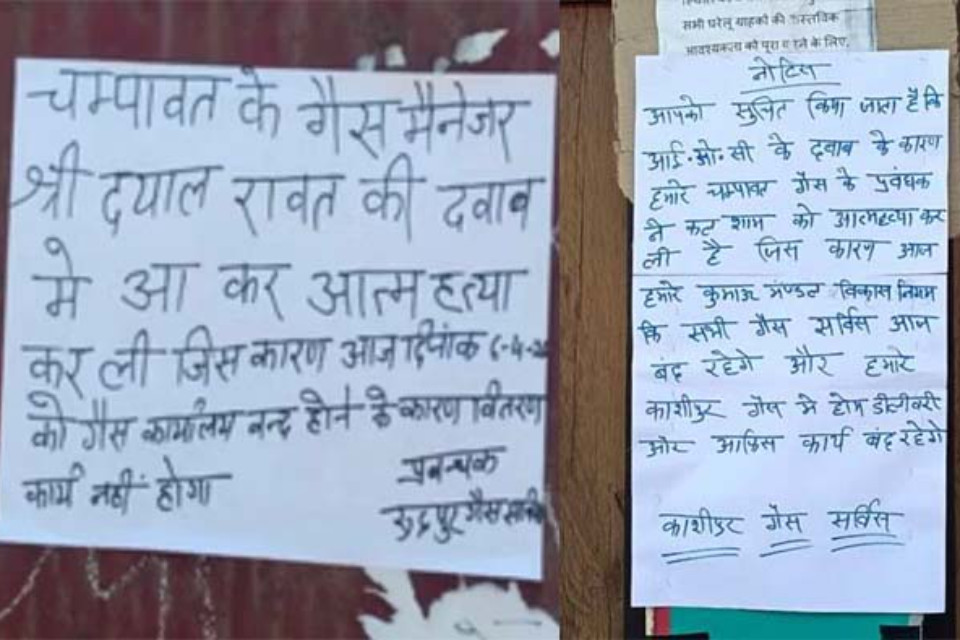 चम्पावत के गैस मैनेजर
श्री दयाल रावत की दवाब
मे आ कर आत्म हत्या
कर ली जिस कारण आज दिनांक 6-4-
को गैस कार्यालय बन्द होने के कारण वितरण
कार्य नहीं होगा
प्रबन्धक
रुद्रपुर गैस सर्विस
सभी घरेलू ग्राहकों की वास्तविक
आवश्यकता को पूरा करने के लिए,
नोटिस
आपको सुचित किया जाता है कि
आई.ओ.सी के दवाब के कारण
हमारे चम्पावत गैस के प्रबंधक
ने कल शाम को आत्महत्या कर
ली है जिस कारण आज
हमारे कुमाऊ मण्डल विकास निगम
कि सभी गैस सर्विस आज
बंद रहेगे और हमारे
काशीपुर गैस मे होम डीलीवरी
और आफिस कार्य बंद रहेगे
काशीपुर गैस सर्विस